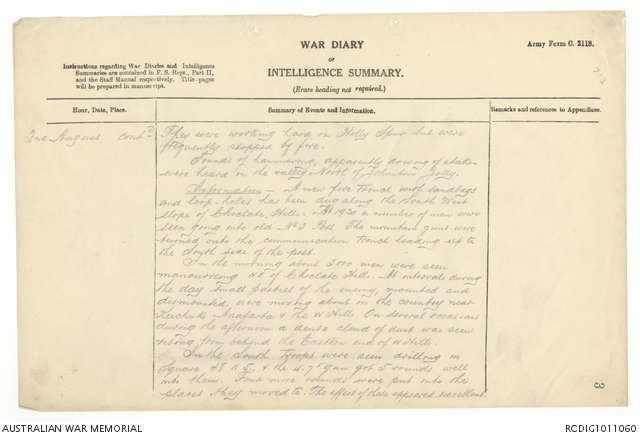 WAR DIARY
or
INTELLIGENCE SUMMARY.
(Erase heading not required.)
Army Form C. 2118.
Instructions regarding War Diaries and Intelligence
Summaries are contained in F. S. Regs., Part II,
and the Staff Manual respectively. Title pages
will be prepared in manuscript.
Hour, Date, Place.
Summary of Events and Information.
Remarks and references to Appendices.
2nd August contd
They were working hard on Holly Spur but were
frequently stopped by fire.
Sounds of hammering, apparently driving of stakes
were heard in the valley North of Johnstons Jolly.
Information - A new fire trench with sandbags
and loop-holes has been dug along the South West
slope of Choclate Hills. At 1930 a number of men were
seen going into old No 3 Post. The mountain guns were
turned onto the communication trench leading up to
the South side of the post.
In the morning about 2000 men were seen
manoeuvring NE of Choclate Hills. At intervals during
the day small parties of the enemy, mounted and
dismounted, were moving about in the country near
Kuchuk Anafarta & the W Hills. On several occasions
during the afternoon a dense cloud of dust was seen
rising from behind the Eastern end of W Hills.
In the South troops were seen drilling in
Square 68 & the 4.7" gun got 5 rounds well
into them. Four more rounds were put into the
places they moved to. The effect of these appeared excellent.
3
AUSTRALIAN WAR MEMORIAL
RCDIG1011060